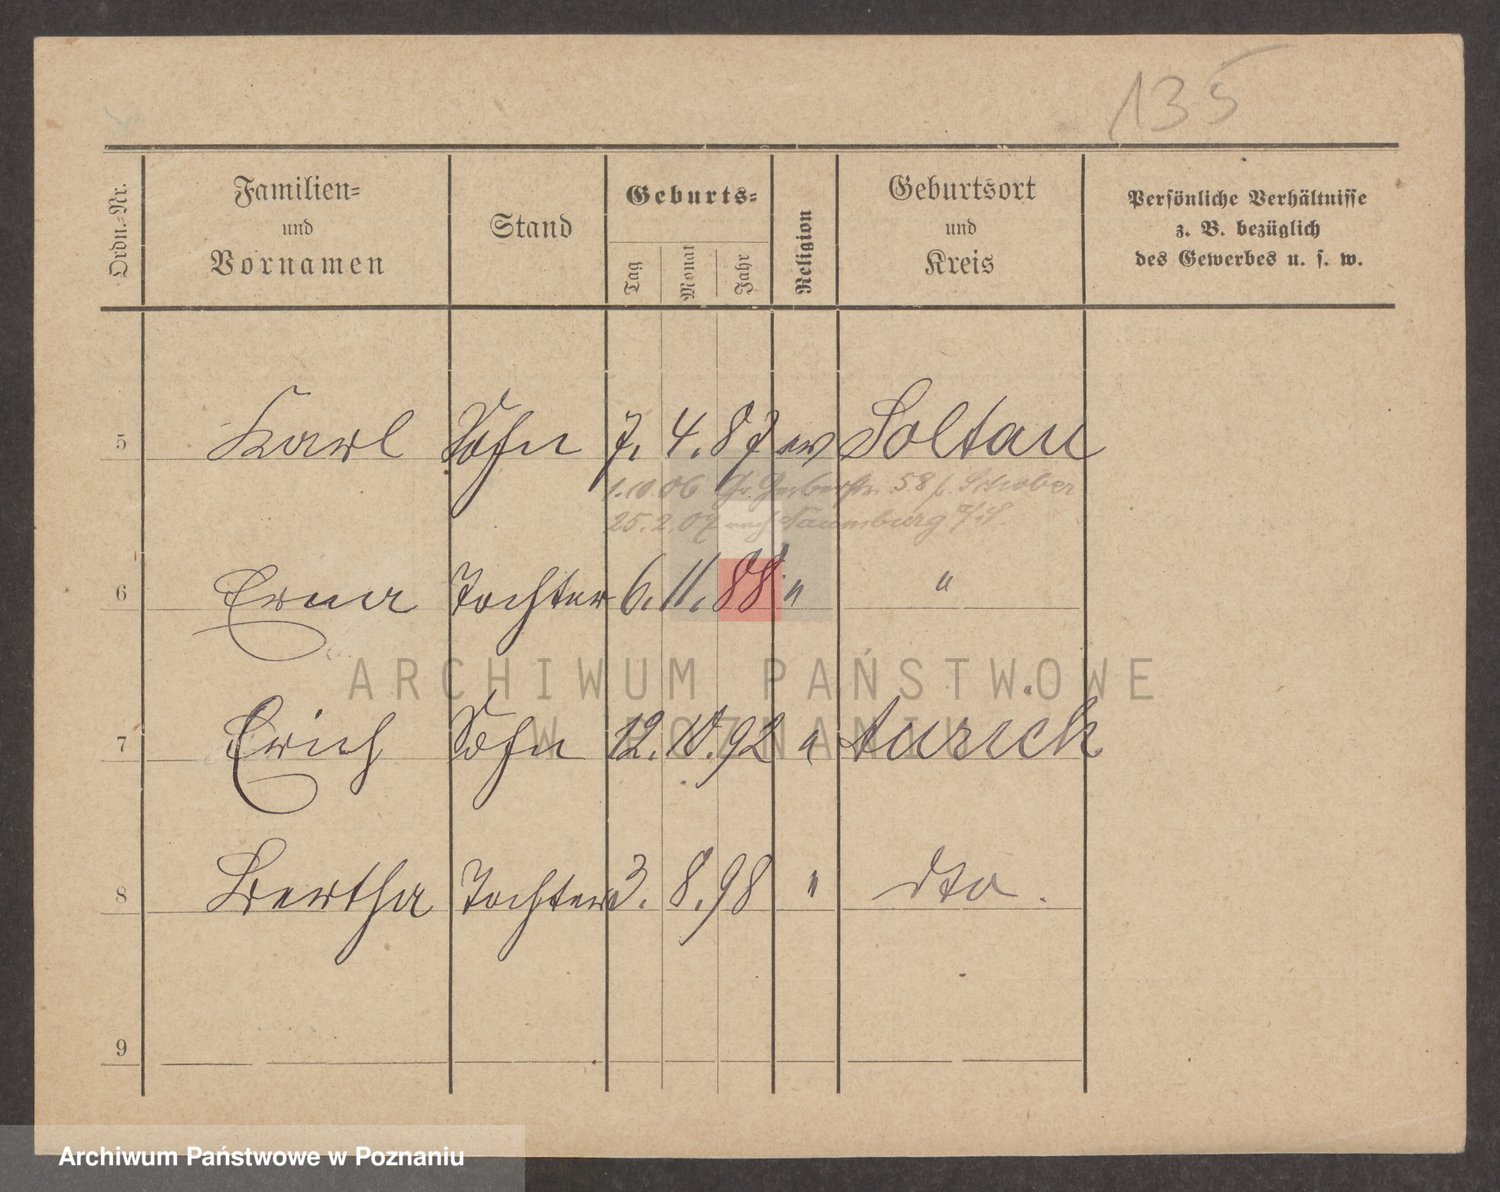 135
Ordn.-Nr.
Familien-
und
Vornamen
Stand
Geburts-
Tag
Monat
Jahr
Religion
Geburtsort
und
Kreis
Persönliche Verhältnisse
z. B. bezüglich
des Gewerbes u. s. w.
5 Karl Sohn 7. 4. 87 ev Soltau
1.10.06 Gr. Gerberstr. 58 b. Schober
25.2.07 nach Naumburg a/S.
6 Erna Tochter 6. 11. 88 " "
7 Erich Sohn 12. 10. 92 " Aurich
8 Bertha Tochter 3. 8. 98 " dto.
9
ARCHIWUM PAŃSTWOWE
W POZNANIU
Archiwum Państwowe w Poznaniu